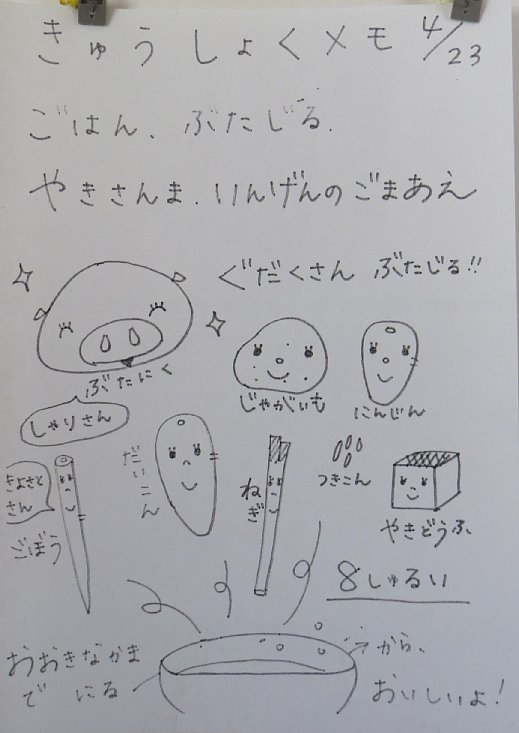 きゅうしょくメモ 4/23
ごはん、ぶたじる、
やきさんま、いんげんのごまあえ
ぐだくさん ぶたじる!!
ぶたにく
じゃがいも
にんじん
しゃりさん
きよさと
さん
ごぼう
だいこん
ねぎ
つきこん
やきどうふ
8しゅるい
おおきなかま
で にる
から、
おいしいよ!